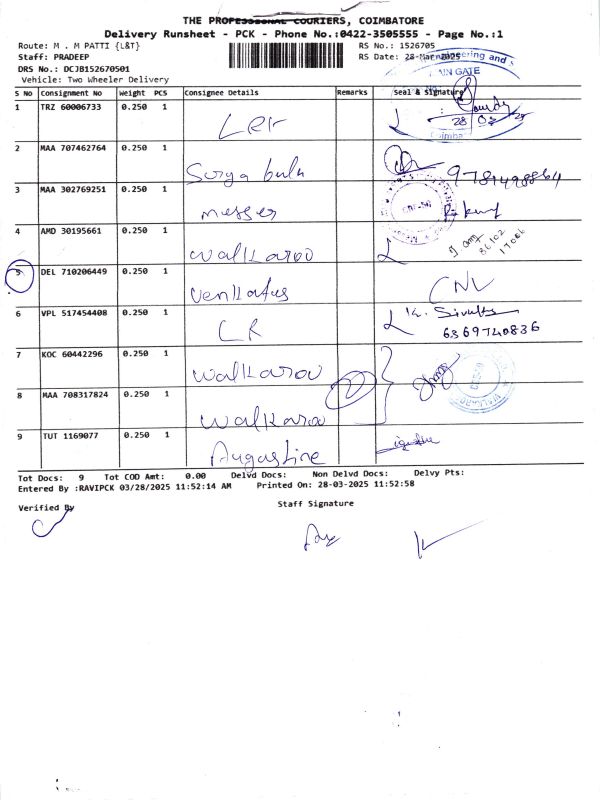 THE PROFESSIONAL COURIERS, COIMBATORE
Delivery Runsheet - PCK - Phone No.:0422-3505555 - Page No.:1
Route: M . M PATTI {L&T} RS No.: 1526705
Staff: PRADEEP RS Date: 28-Mar-2025
DRS No.: DCJB152670501
Vehicle: Two Wheeler Delivery
S NO Consignment No Weight PCS Consignee Details Remarks Seal & Signature
1 TRZ 60006733 0.250 1
2 MAA 707462764 0.250 1 Surya
3 MAA 302769251 0.250 1 messer
4 AMD 30195661 0.250 1 walkaroo
5 DEL 710206449 0.250 1 CNL
6 VPL 517454408 0.250 1 6369740836
7 KOC 60442296 0.250 1 walkaroo
8 MAA 708317824 0.250 1 walkaroo
9 TUT 1169077 0.250 1 Augastine
Tot Docs: 9 Tot COD Amt: 0.00 Delvd Docs: Non Delvd Docs: Delvy Pts:
Entered By :RAVIPCK 03/28/2025 11:52:14 AM Printed On: 28-03-2025 11:52:58
Verified By Staff Signature